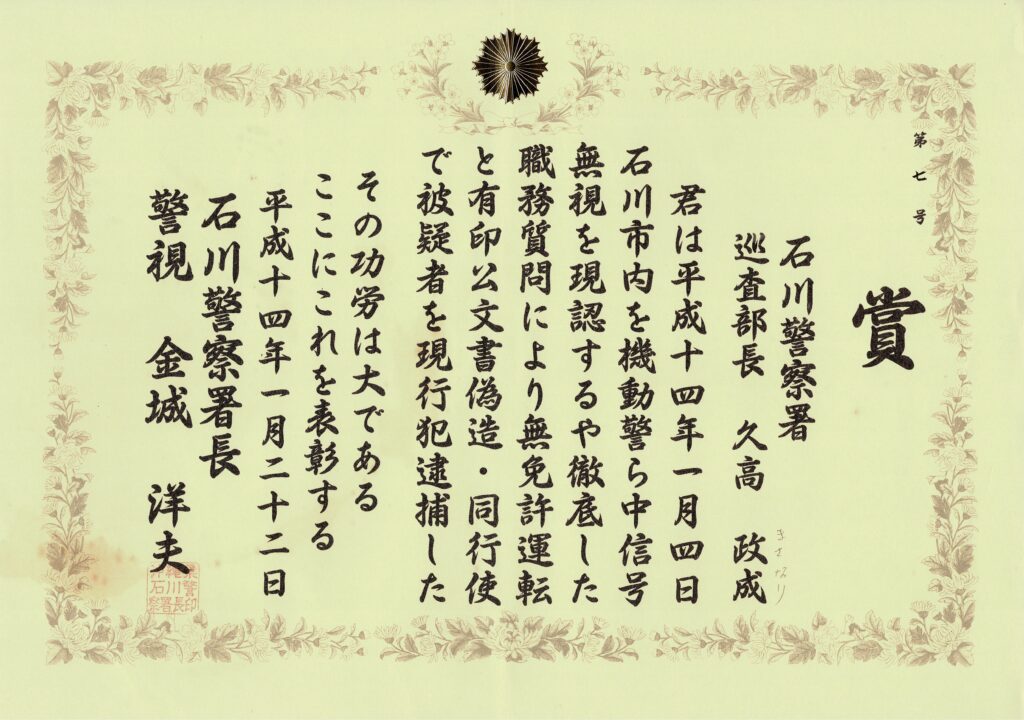 第七号
賞
石川警察署
巡査部長　久高　政成
まさなり
君は平成十四年一月四日
石川市内を機動警ら中信号
無視を現認するや徹底した
職務質問により無免許運転
と有印公文書偽造・同行使
で被疑者を現行犯逮捕した
その功労は大である
ここにこれを表彰する
平成十四年一月二十二日
石川警察署長
警視　金城　洋夫